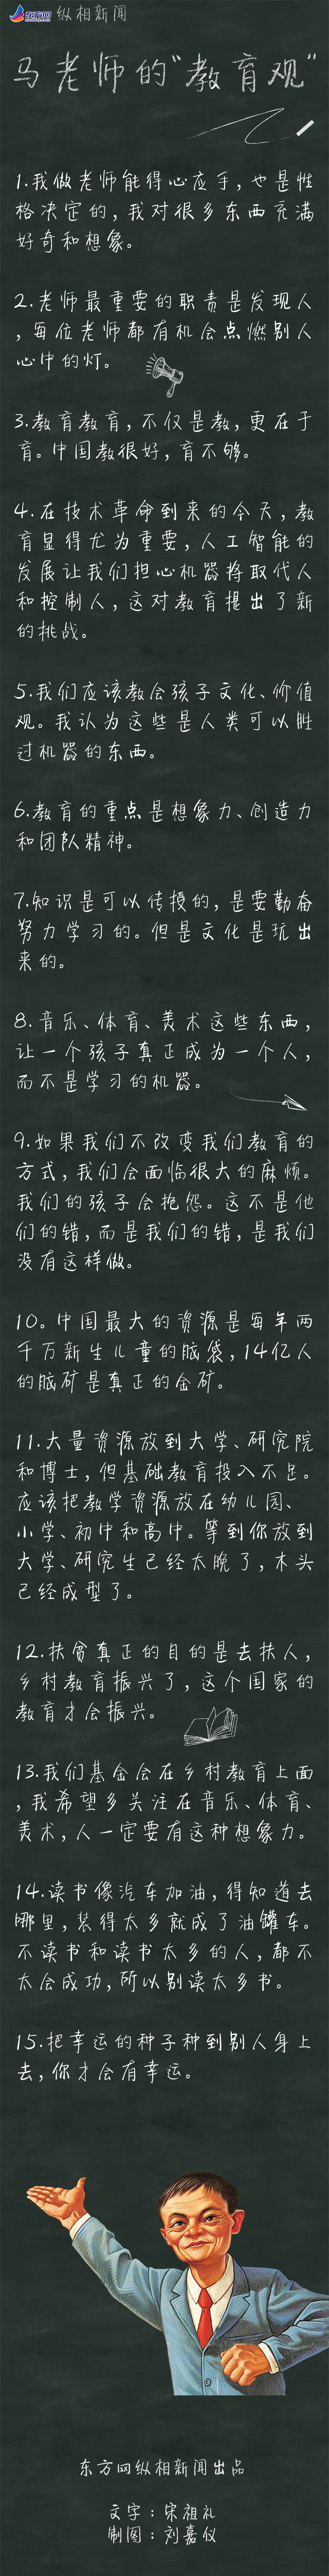 东方网 纵相新闻
马老师的“教育观”
1.我做老师能得心应手，也是性
格决定的，我对很多东西充满
好奇和想象。
2.老师最重要的职责是发现人
，每位老师都有机会点燃别人
心中的灯。
3.教育教育，不仅是教，更在于
育。中国教很好，育不够。
4.在技术革命到来的今天，教
育显得尤为重要，人工智能的
发展让我们担心机器将取代人
和控制人，这对教育提出了新
的挑战。
5.我们应该教会孩子文化、价值
观。我认为这些是人类可以胜
过机器的东西。
6.教育的重点是想象力、创造力
和团队精神。
7.知识是可以传授的，是要勤奋
努力学习的。但是文化是玩出
来的。
8.音乐、体育、美术这些东西，
让一个孩子真正成为一个人，
而不是学习的机器。
9.如果我们不改变我们教育的
方式，我们会面临很大的麻烦。
我们的孩子会抱怨。这不是他
们的错，而是我们的错，是我们
没有这样做。
10。中国最大的资源是每年两
千万新生儿童的脑袋，14亿人
的脑矿是真正的金矿。
11.大量资源放到大学、研究院
和博士，但基础教育投入不足。
应该把教学资源放在幼儿园、
小学、初中和高中。等到你放到
大学、研究生已经太晚了，木头
已经成型了。
12.扶贫真正的目的是去扶人，
乡村教育振兴了，这个国家的
教育才会振兴。
13.我们基金会在乡村教育上面
，我希望多关注在音乐、体育、
美术，人一定要有这种想象力。
14.读书像汽车加油，得知道去
哪里，装得太多就成了油罐车。
不读书和读书太多的人，都不
太会成功，所以别读太多书。
15.把幸运的种子种到别人身上
去，你才会有幸运。
东方网纵相新闻出品
文字：宋祖礼
制图：刘嘉仪